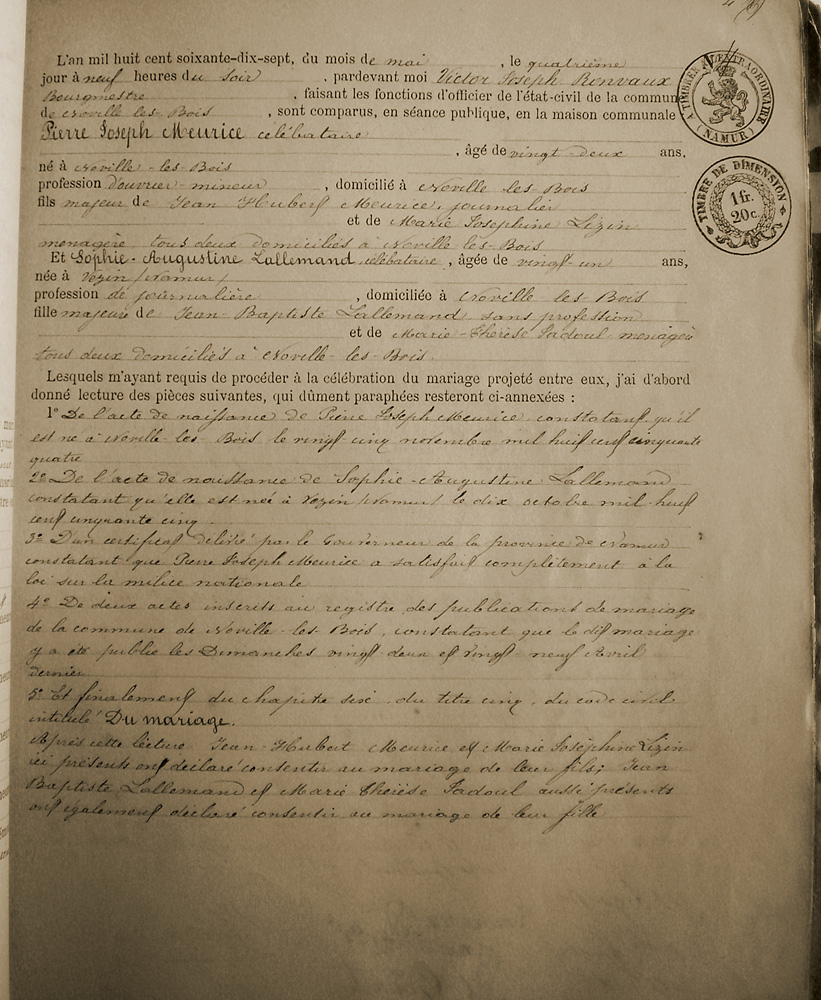 L'an mil huit cent soixante-dix-sept, du mois de mai , le quatrième
jour à neuf heures du soir , pardevant moi Victor Joseph Ronvaux
Bourgmestre , faisant les fonctions d'officier de l'état-civil de la commune
de Noville les-Bois , sont comparus, en séance publique, en la maison communale
Pierre Joseph Meurice célébataire
, âgé de vingt-deux ans,
né à Noville-les-Bois
profession d'ouvrier-mineur , domicilié à Noville les-Bois
fils majeur de Jean Hubert Meurice, journalier
et de Marie Josephine Lizin
menagère, tous deux domiciliés à Noville les-Bois
Et Sophie-Augustine Lallemand célébataire , âgée de vingt-un ans,
née à Vezin (Namur)
profession de journalière , domiciliée à Noville les-Bois
fille majeure de Jean-Baptiste Lallemand sans profession
et de Marie-Thérèse Fadoul menagère
tous deux domiciliés à Noville-les-Bois.
Lesquels m'ayant requis de procéder à la célébration du mariage projeté entre eux, j'ai d'abord
donné lecture des pièces suivantes, qui dûment paraphées resteront ci-annexées :
1° De l'acte de naissance de Pierre Joseph Meurice, constatant qu'il
est né à Noville-les-Bois le vingt-cinq novembre mil huit cent cinquante
quatre
2° De l'acte de naissance de Sophie-Augustine Lallemand
constatant qu'elle est née à Vezin (Namur) le dix octobre mil huit
cent cinquante cinq.
3° D'un certificat délivré par le Gouverneur de la province de Namur
constatant que Pierre Joseph Meurice a satisfait complètement à la
loi sur la milice nationale
4° De deux actes inscrits au registre des publications de mariage
de la commune de Noville-les-Bois, constatant que le dit mariage
y a été publié les Dimanches vingt-deux et vingt-neuf Avril
dernier
5° Et finalement du chapitre six, du titre cinq, du code civil
intitulé Du mariage.
Après cette lecture Jean-Hubert Meurice et Marie Joséphine Lizin
ici présents ont déclaré consentir au mariage de leur fils; Jean
Baptiste Lallemand et Marie Thérèse Fadoul aussi présents
ont également déclaré consentir au mariage de leur fille
A TIMBRER A L'EXTRAORDINAIRE
(NAMUR)
TIMBRE DE DIMENSION
1 fr.
20 c.